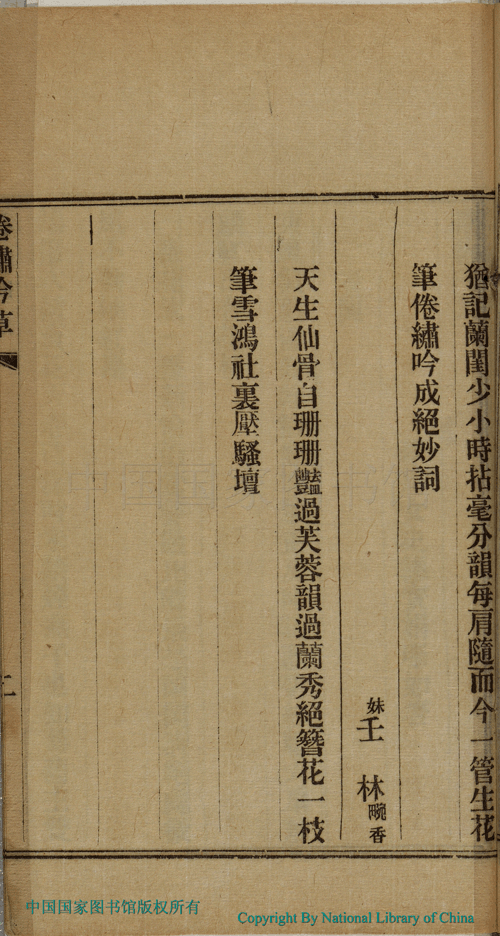 猶記蘭閨少小時拈毫分韻每肩隨而今一管生花
筆倦繡吟成絕妙詞
妹壬林畹香
天生仙骨自珊珊豔過芙蓉韻過蘭秀絕簪花一枝
筆雪鴻社裏壓騷壇
倦繡吟草
二
中国国家图书馆版权所有
Copyright By National Library of China